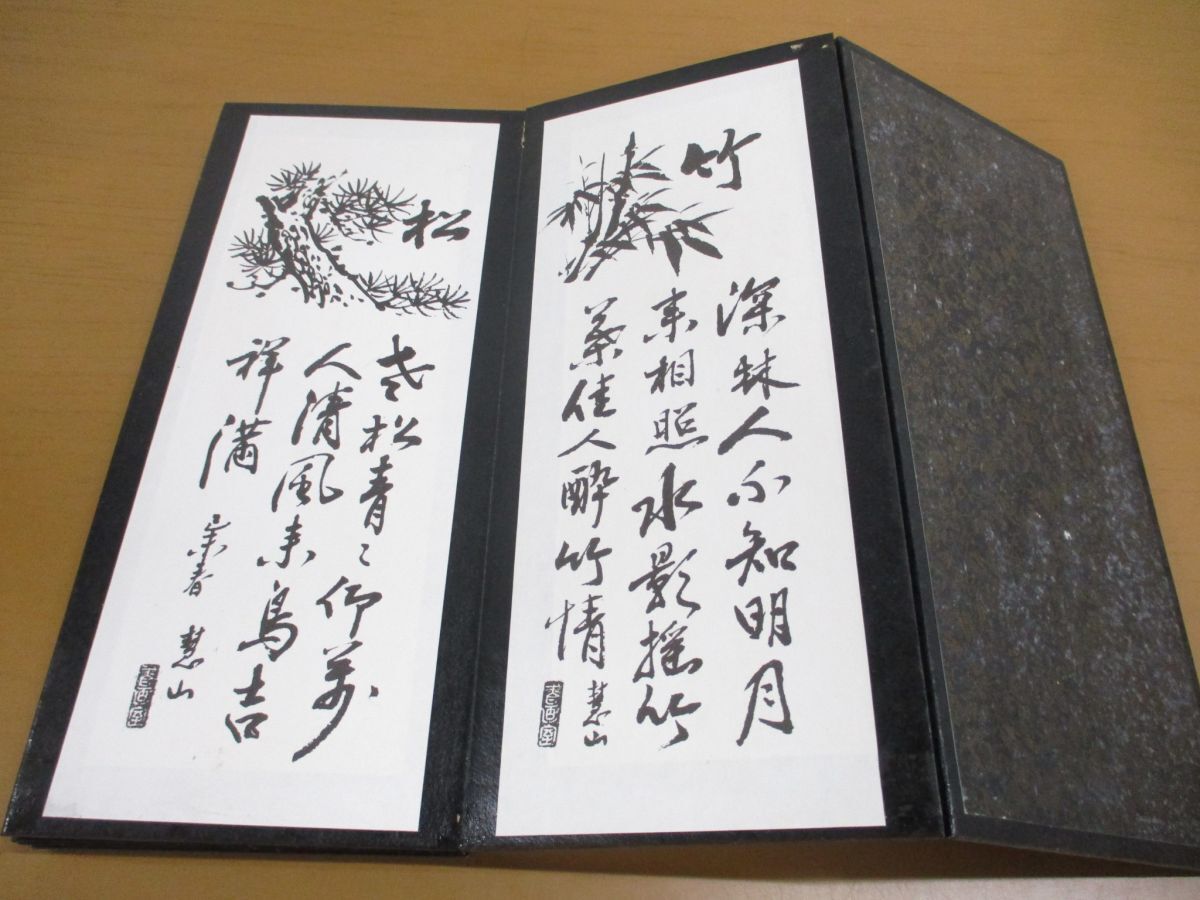 竹
深林人不知明月
来相照水影揺竹
葉佳人酔竹情
慧山
松
老松青〻仰萬
人清風来鳥吉
祥満
春 慧山